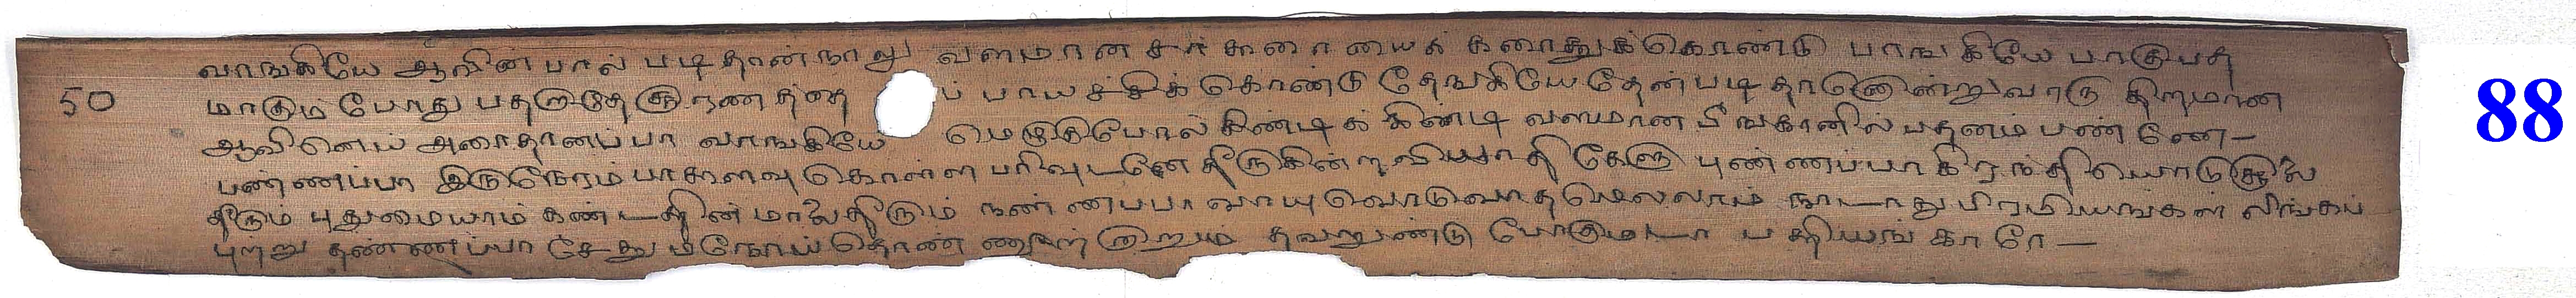 வாங்கியே ஆவின்பால் படிதான்நாலு வளமான சர்சுரையைக் கரைத்துக்கொண்டு பாங்கியே பாகுபத
50 மாகும்போது பதறுடுதே சூரணத்தை ப் பாய்ச்சிக்கொண்டு தேங்கியே தேன்படி தானொன்றுவாடு திறமான
ஆவினெய் அரைதானப்பா வாங்கியே மெழுகுபோல் கிண்டிக் கிண்டி வளமான பீங்கானில் பதனம் பண்ணே-
பண்ணப்பா இருநேரம் பாகளவு கொள்ள பரிவுடனே தீருகின்ற வியாதி கேளு புண்ணப்பா கிரந்தியொடு சூலை
தீரும் புதுமையாம் கண்டத்தின்மாலை தீரும் நண்ணப்பா வாயுவொடுவாதமெல்லாம் நாடாது பிரமியங்கள் லிங்கப்
புற்று தண்ணப்பா சேத்துமநோய் தொண்ணூற்றாறும் தவறுண்டு போகுமடா பத்தியங் காரே-